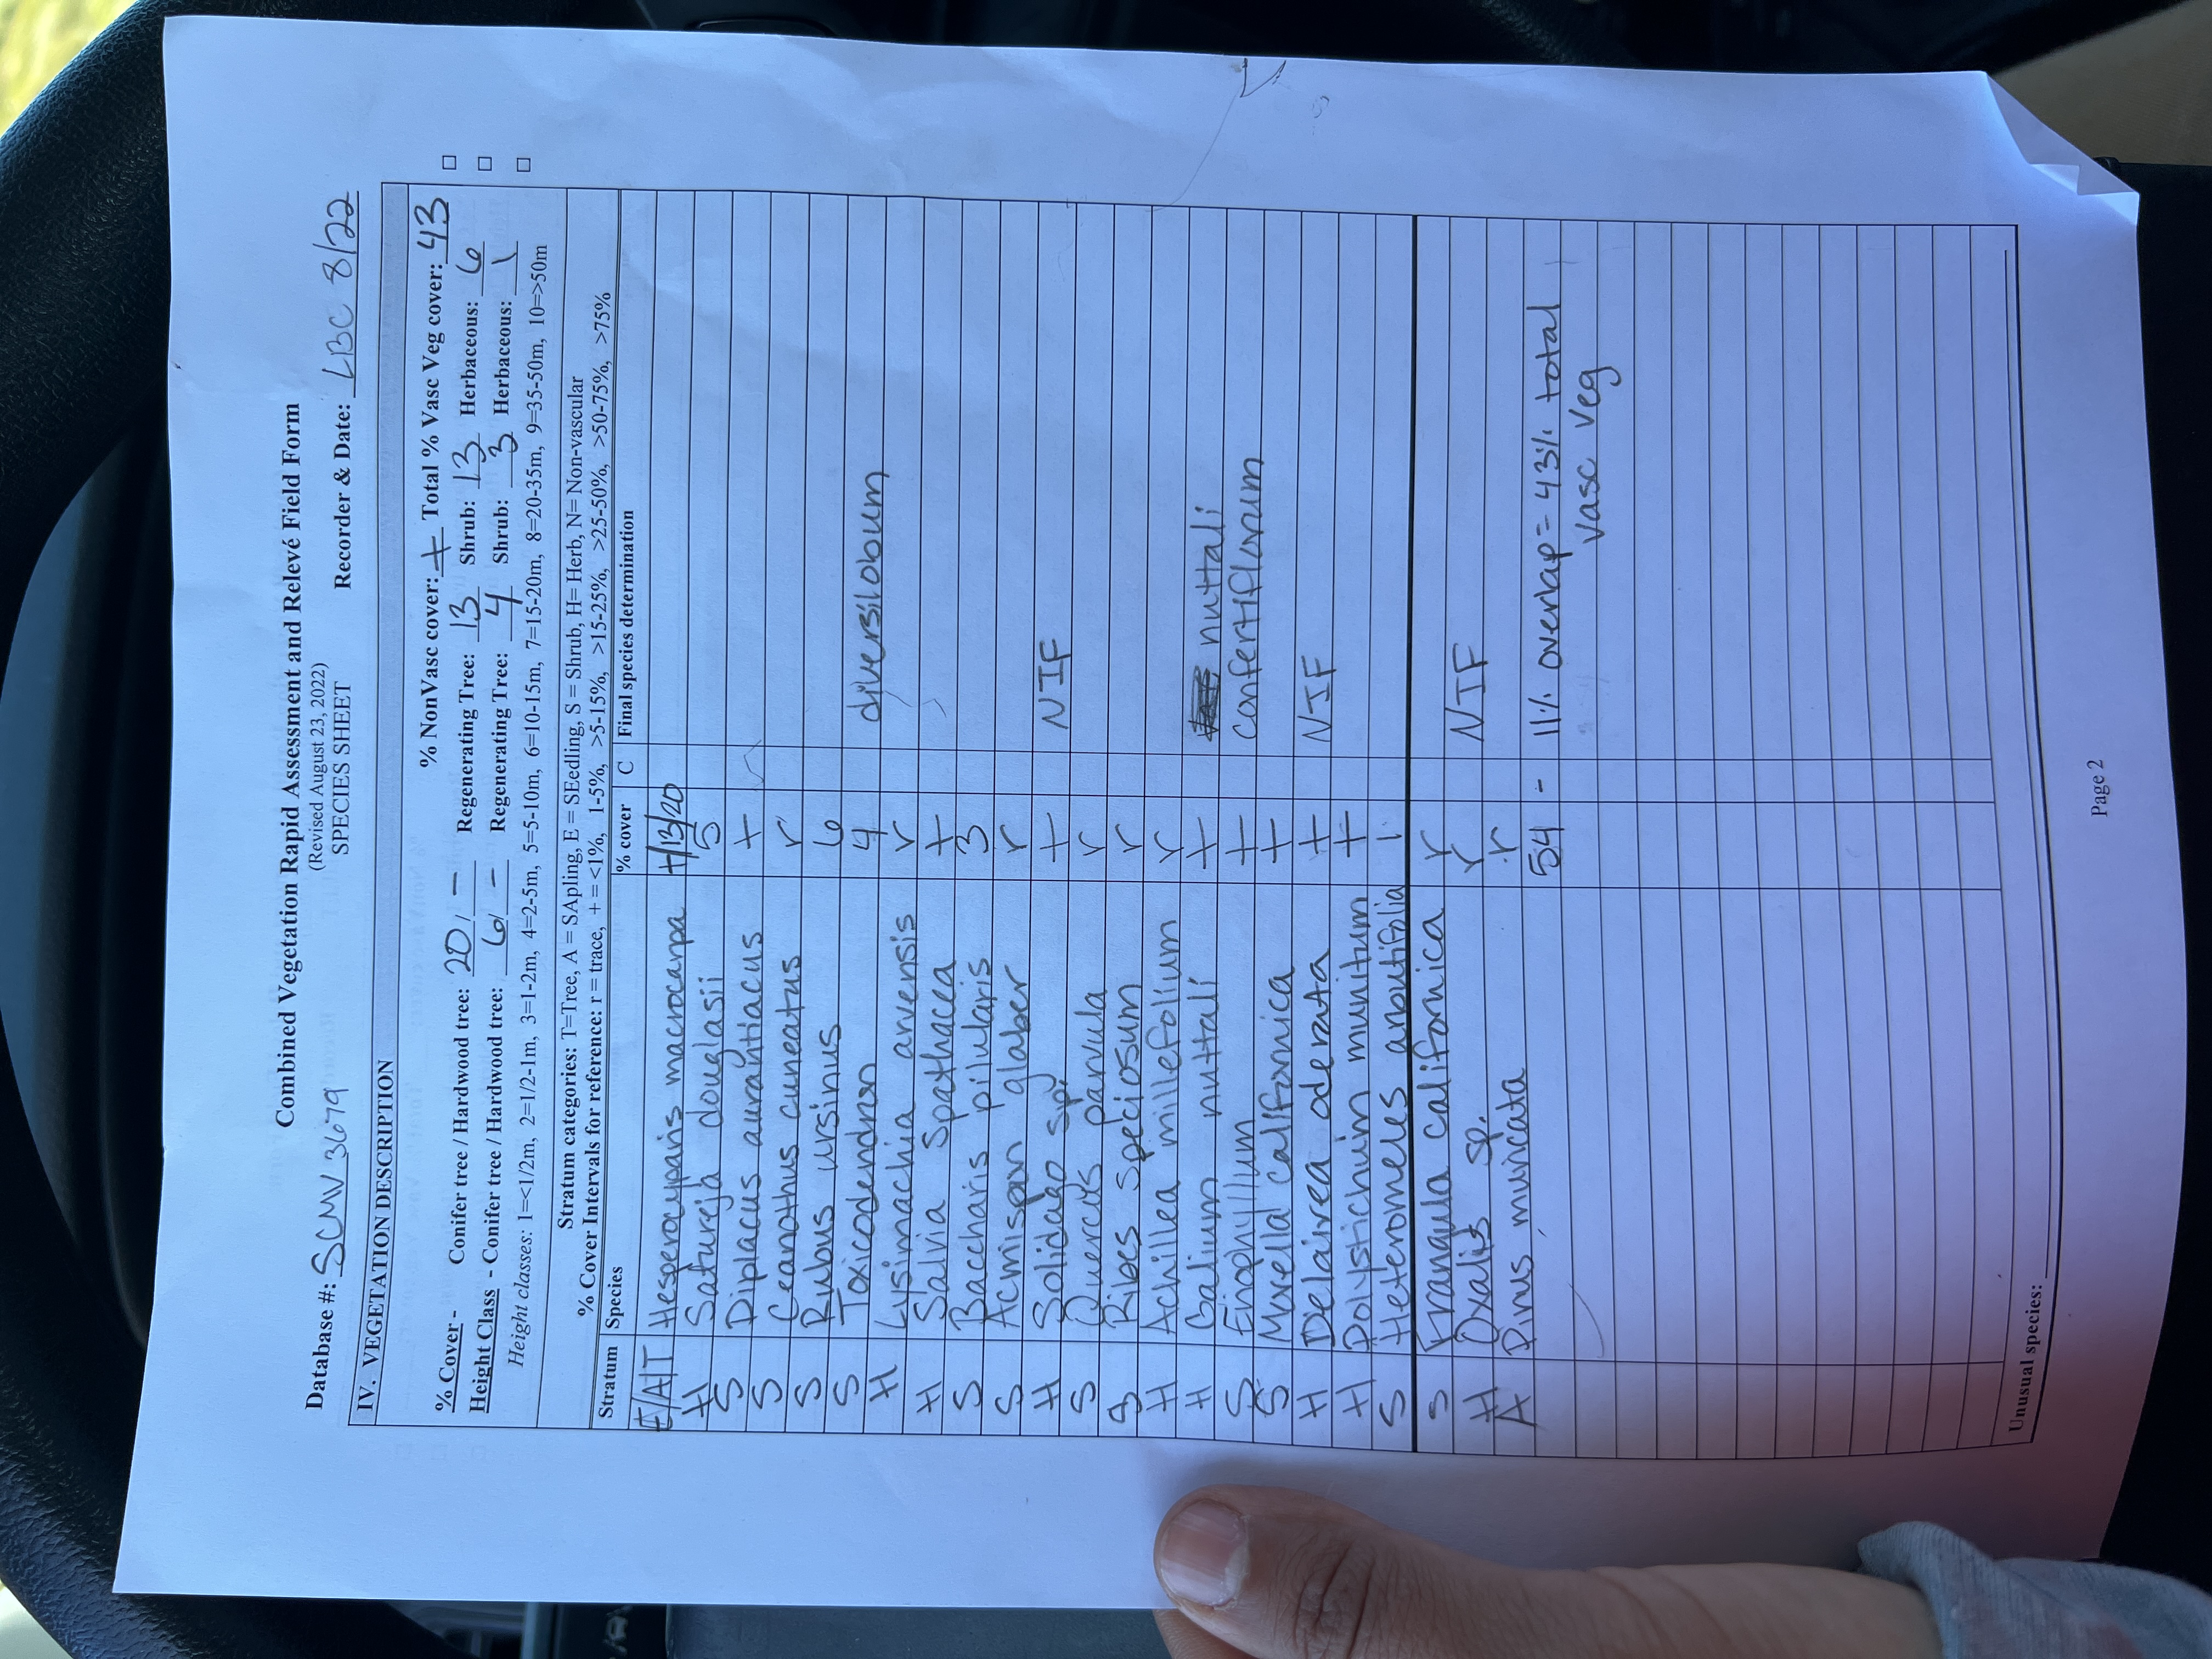 Combined Vegetation Rapid Assessment and Relevé Field Form
(Revised August 23, 2022)
SPECIES SHEET
Database #: SCMV 3679 Recorder & Date: LBC 8/22
IV. VEGETATION DESCRIPTION
% NonVasc cover: + Total % Vasc Veg cover: 43
% Cover - Conifer tree / Hardwood tree: 20 / - Regenerating Tree: 13 Shrub: 13 Herbaceous: 6
Height Class - Conifer tree / Hardwood tree: 6 / - Regenerating Tree: 4 Shrub: 3 Herbaceous: 1
Height classes: 1=<1/2m, 2=1/2-1m, 3=1-2m, 4=2-5m, 5=5-10m, 6=10-15m, 7=15-20m, 8=20-35m, 9=35-50m, 10=>50m
Stratum categories: T=Tree, A = SApling, E = SEedling, S = Shrub, H= Herb, N= Non-vascular
% Cover Intervals for reference: r = trace, + = <1%, 1-5%, >5-15%, >15-25%, >25-50%, >50-75%, >75%
Stratum Species % cover C Final species determination
E/A/T Hesperocyparis macrocarpa +/13/20
H Satureja douglasii 5
S Diplacus aurantiacus +
S Ceanothus cuneatus r
S Rubus ursinus 6
S Toxicodendron 4 diversilobum
H Lysimachia arvensis r
H Salvia spathacea +
S Baccharis pilularis 3
S Acmispon glaber r
H Solidago sp. + NIF
S Quercus parvula r
S Ribes speciosum r
H Achillea millefolium r
H Galium nuttali + nuttali
S Eriophyllum + confertiflorum
S Morella californica +
H Delairea oderata + NIF
H Polystichum munitum +
S Heteromeles arbutifolia 1
S Frangula californica r
H Oxalis sp. r NIF
A Pinus muricata r
54 - 11% overlap = 43% total
vasc veg
Unusual species:
Page 2